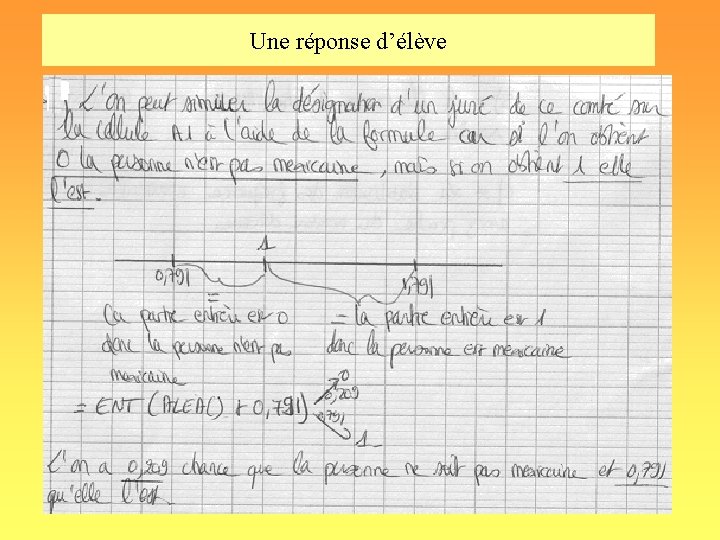 Une réponse d'élève
L'on peut simuler la désignation d'un juré de ce comté sur
la cellule A1 à l'aide de la formule car si l'on obtient
0 la personne n'est pas mexicaine, mais si on obtient 1 elle
l'est.
1
0,791 1,791
= =
La partie entière est 0 la partie entière est 1
donc la personne n'est pas donc la personne est mexicaine
mexicaine
0
= ENT (ALEA() + 0,791) 0,209
0,791
1
L'on a 0,209 chance que la personne ne soit pas mexicaine et 0,791
qu'elle l'est.